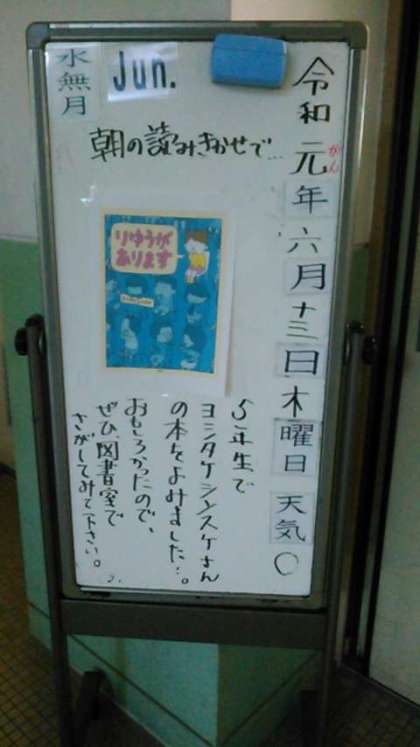 令和元年六月十三日木曜日 天気〇
がん
水無月
Jun.
朝の読みきかせで…
りゆうが
あります
5年生で
ヨシタケシンスケさん
の本をよみました。
おもしろかったので、
ぜひ、図書室で
さがしてみて下さい。